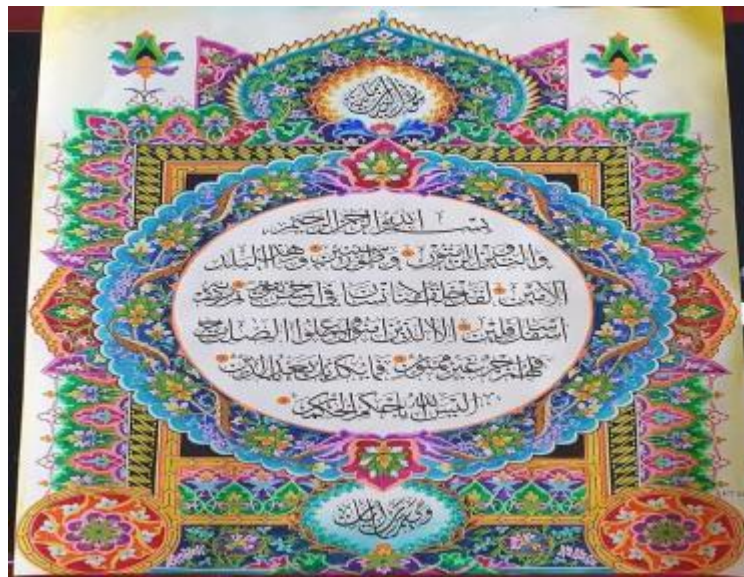 بسم الله الرحمن الرحيم
والتين والزيتون وطور سينين وهذا البلد
الامين لقد خلقنا الانسان في احسن تقويم ثم رددنه
اسفل سفلين الا الذين امنوا وعملوا الصلحت
فلهم اجر غير ممنون فما يكذبك بعد بالدين
اليس الله باحكم الحكمين